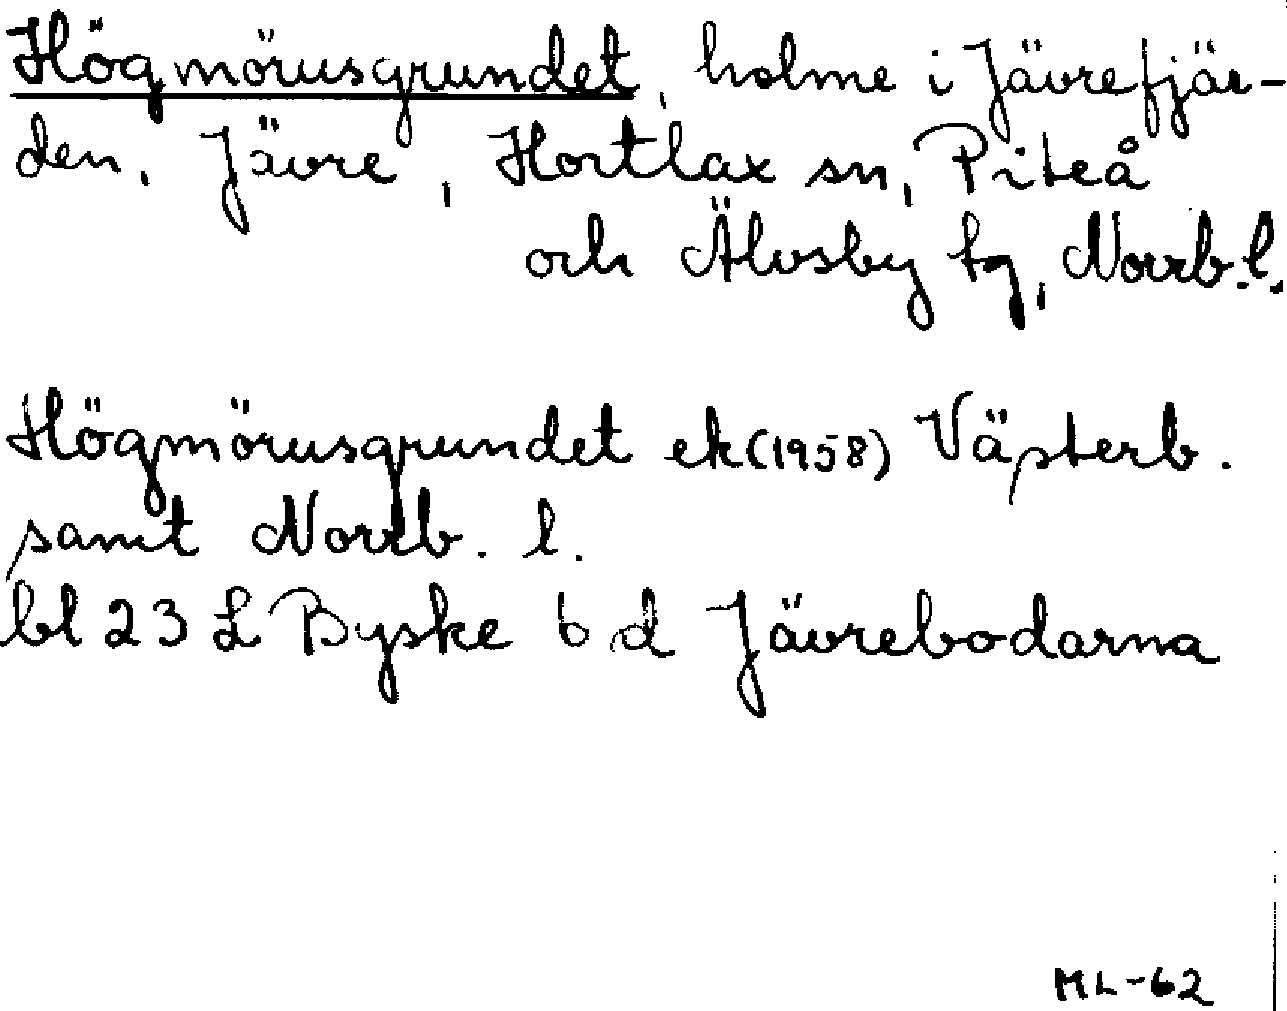 Högmörusgrundet, holme i Jävrefjär-
den, Jävre, Hortlax sn, Piteå
och Älvsby tg, Norrb. l.
Högmörusgrundet ek (1958) Västerb.
samt Norrb. l.
bl 23 L Byske 6 d Jävrebodarna
ML-62